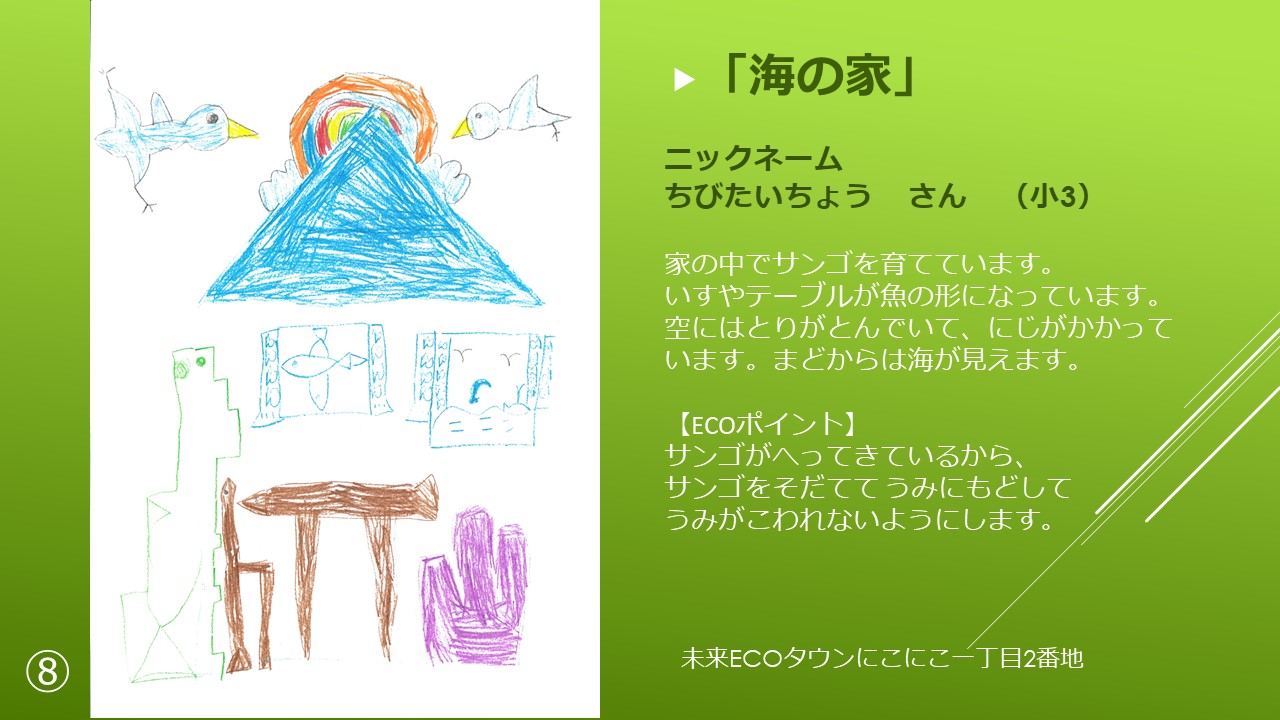 「海の家」
ニックネーム
ちびたいちょう　さん　（小3）
家の中でサンゴを育てています。
いすやテーブルが魚の形になっています。
空にはとりがとんでいて、にじがかかって
います。まどからは海が見えます。
【ECOポイント】
サンゴがへってきているから、
サンゴをそだてて うみにもどして
うみがこわれないようにします。
未来ECOタウンにこにこ一丁目2番地
⑧